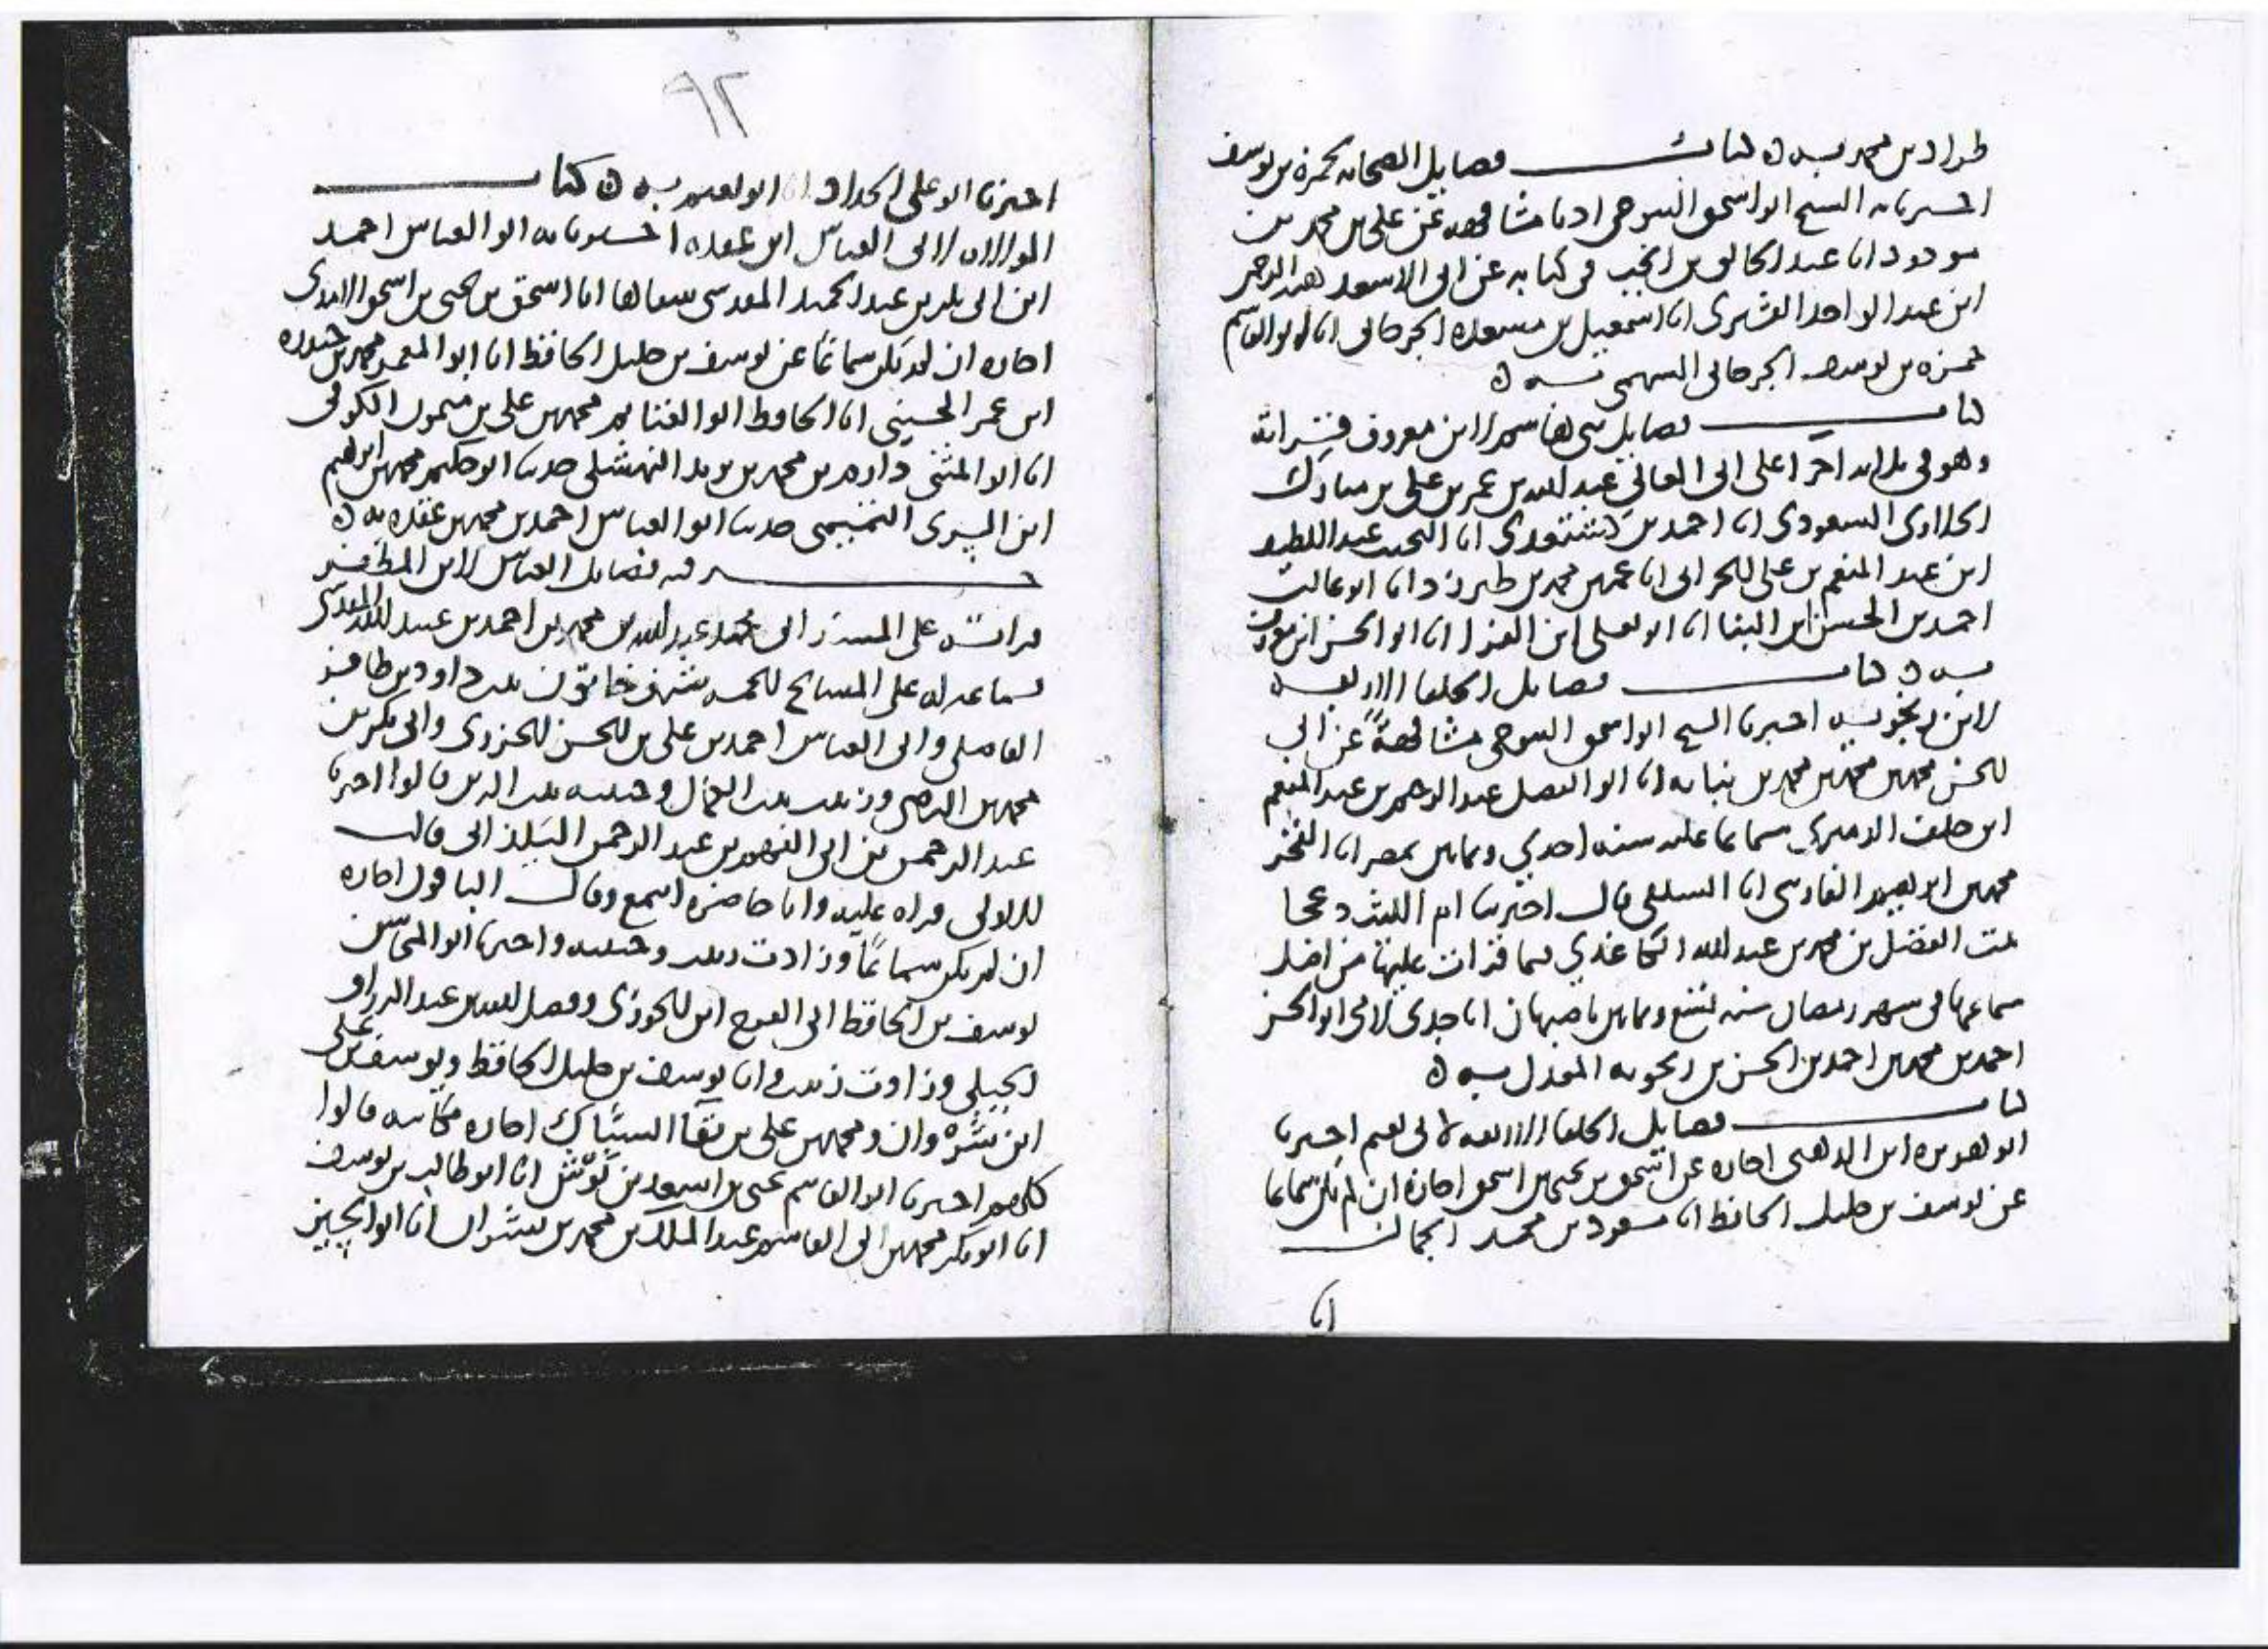 طراد بن محمد به ه كتاب فضايل الصحابه لحمزه بن يوسف
اخبرنا به الشيخ ابو اسحق التنوخي اذنا مشافهه عن علي بن محمد بن
مودود انا عبد الخالق بن انجب في كتابه عن ابي الاسعد هبه الرحمن
ابن عبد الواحد القشيري انا اسمعيل بن مسعده الجرجاني انا ابو القاسم
حمزه بن يوسف الجرجاني السهمي به ه
كتاب فضايل بني هاشم لابن معروف قراته
وهو في اخر على ابي المعالي عبد الله بن عمر بن علي بن مبارك
الحلاوي السعودي انا احمد بن كشتغدي انا النجيب عبد اللطيف
ابن عبد المنعم بن علي الحراني انا عمر بن محمد بن طبرزد انا ابو غالب
احمد بن الحسن ابن البنا انا ابو يعلى ابن الفرا انا ابو الحسن ابن معروف
به ه كتاب فضايل الخلفا الاربعه
لابن زنجويه اخبرنا الشيخ ابو اسحق التنوخي مشافهة عن ابي
الحسن محمد بن محمد بن محمد بن نباته انا ابو الفضل عبد الرحيم بن عبد المنعم
ابن خلف الدميري سماعا عليه سنه احدي وثمانين بمصر انا الفخر
محمد بن ابراهيم الفارسي انا السلفي قال اخبرتنا ام الليث دعجا
بنت الفضل بن محمد بن عبد الله الكاغذي فيما قرات عليها من اصل
سماعها في شهر رمضان سنه تسع وثمانين باصبهان انا جدي لامي ابو الحسن
احمد بن محمد بن احمد بن الحسن بن زنجويه المعدل به ه
كتاب فضايل الخلفا الاربعه لابي نعيم اخبرنا
ابو هريره ابن الذهبي اجازه عن اسحق بن يحيى بن اسحق اجازه ان لم يكن سماعا
عن يوسف بن خليل الحافظ انا مسعود بن محمد الجمال
انا
٩٢
اخبرنا ابو علي الحداد انا ابو نعيم به ه كتاب
الموالاه لابي العباس ابن عقده اخبرنا به ابو العباس احمد
ابن ابي بكر بن عبد الحميد المقدسي شفاها انا اسحق بن يحيى بن اسحق الامدي
اجازه ان لم يكن سماعا عن يوسف بن خليل الحافظ انا ابو المعمر محمد بن حيدره
ابن عمر الحسيني انا الحافظ ابو الغنايم محمد بن علي بن ميمون الكوفي
انا ابو المثنى دارم بن محمد بن يزيد النهشلي حدثنا ابو حكيم محمد بن ابرهيم
ابن السري التميمي حدثنا ابو العباس احمد بن محمد بن عقده به ه
جز فيه فضايل العباس لابن المظفر
قراته على المسند ابي محمد عبد الله بن محمد بن احمد بن عبيد الله المقدسي
بسماعه له على المشايخ الخمسه شرف خاتون بنت داود بن ظافر
الفاضلي وابي العباس احمد بن علي بن الحسن الجزري وابي بكر بن
محمد بن الرضي وزينب بنت الكمال وحبيبه بنت الزين قالوا اخبرنا
عبد الرحمن بن ابي الفهم بن عبد الرحمن اليلداني قالت
للاولى قراه عليه وانا حاضره اسمع وقال الباقون اجازه
ان لم يكن سماعا وزادت زينب وحبيبه واخبرنا ابو المحاسن
يوسف بن الحافظ ابي الفرج ابن الجوزي وفضل الله بن عبد الرزاق
الجيلي وزادت زينب وانا يوسف بن خليل الحافظ ويوسف بن علي
ابن شروان ومحمد بن علي بن بقا السباك اجازه مكاتبه قالوا
كلهم اخبرنا ابو القاسم يحيى بن اسعد بن بوش انا ابو طالب بن يوسف
انا ابو بكر محمد بن ابي القاسم عبد الملك بن محمد بن بشران انا ابو الحسين